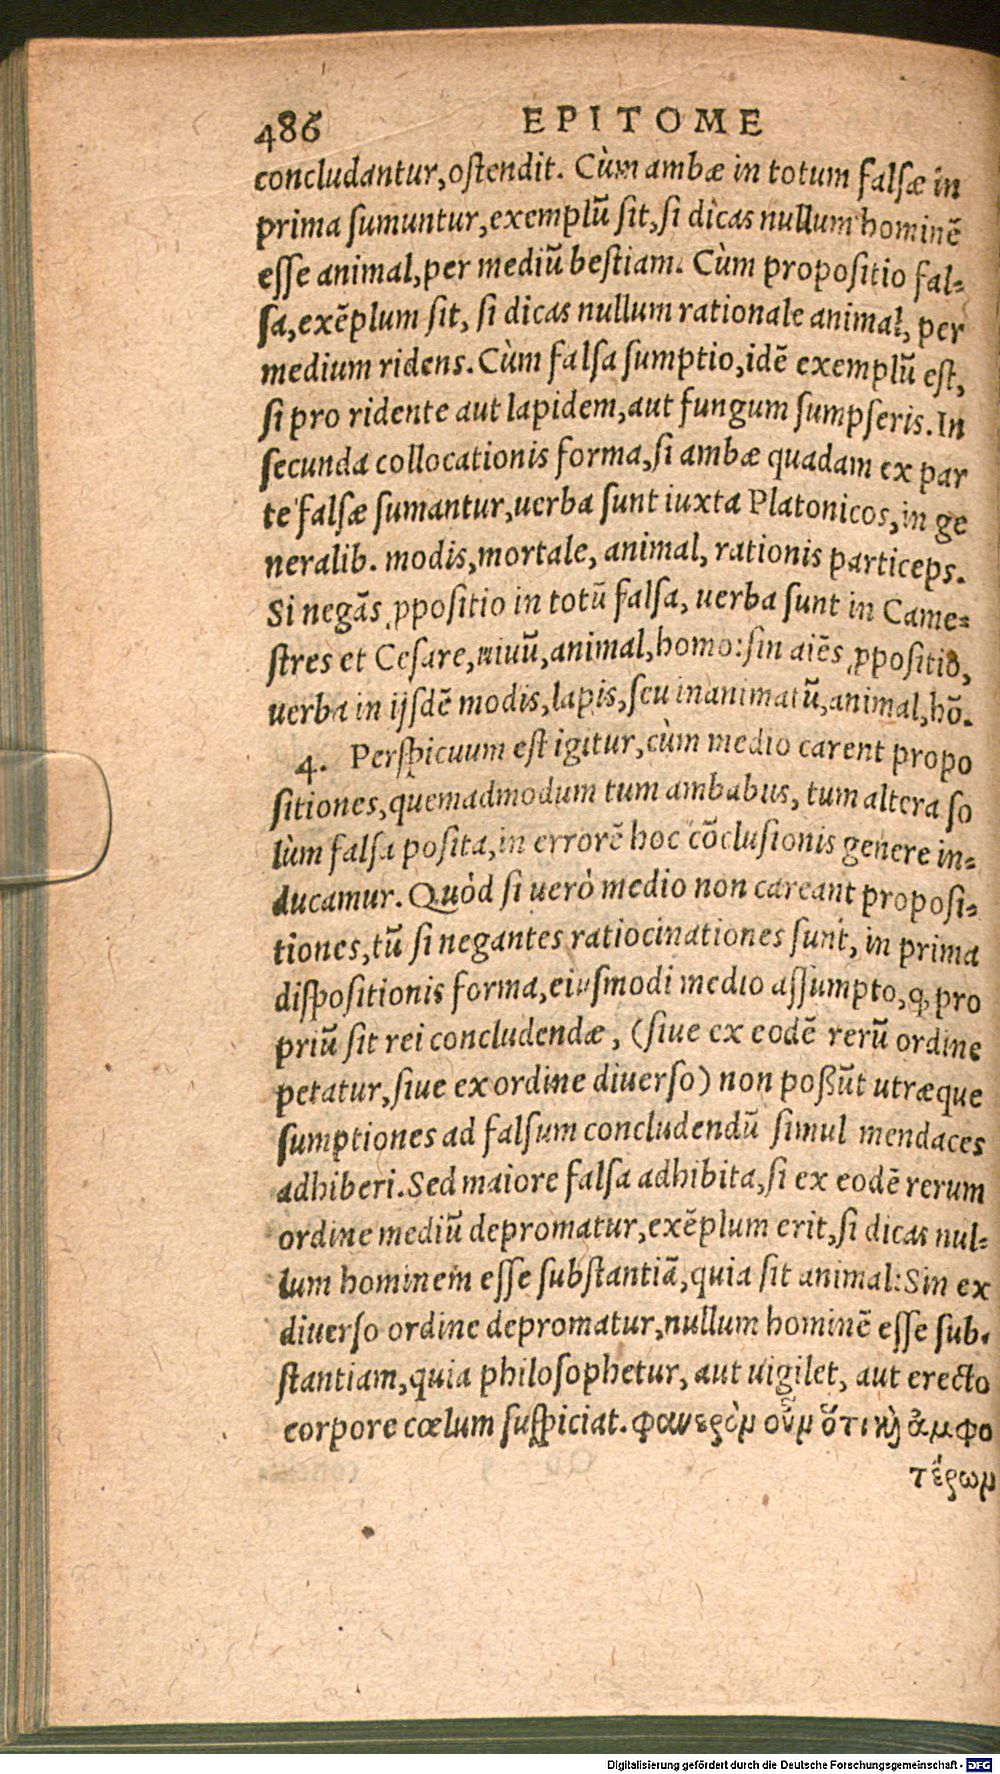 486 EPITOME
concludantur, ostendit. Cùm ambæ in totum falsæ in
prima sumuntur, exemplũ sit, si dicas nullum hominẽ
esse animal, per mediũ bestiam. Cùm propositio fal-
sa, exẽplum sit, si dicas nullum rationale animal, per
medium ridens. Cùm falsa sumptio, idẽ exemplũ est,
si pro ridente aut lapidem, aut fungum sumpseris. In
secunda collocationis forma, si ambæ quadam ex par
te falsæ sumantur, uerba sunt iuxta Platonicos, in ge
neralib. modis, mortale, animal, rationis particeps.
Si negãs ꝓpositio in totũ falsa, uerba sunt in Came-
stres et Cesare, uiuũ, animal, homo: sin aiẽs ꝓpositio,
uerba in ijsdẽ modis, lapis, seu inanimatũ, animal, hõ.
4. Perspicuum est igitur, cùm medio carent propo
sitiones, quemadmodum tum ambabus, tum altera so
lùm falsa posita, in errorẽ hoc cõclusionis genere in-
ducamur. Quòd si uerò medio non careant proposi-
tiones, tũ si negantes ratiocinationes sunt, in prima
dispositionis forma, eiusmodi medio assumpto, ꝙ pro
priũ sit rei concludendæ, (siue ex eodẽ rerũ ordine
petatur, siue ex ordine diuerso) non possũt utræque
sumptiones ad falsum concludendũ simul mendaces
adhiberi. Sed maiore falsa adhibita, si ex eodẽ rerum
ordine mediũ depromatur, exẽplum erit, si dicas nul-
lum hominem esse substantiã, quia sit animal: Sin ex
diuerso ordine depromatur, nullum hominẽ esse sub-
stantiam, quia philosophetur, aut uigilet, aut erecto
corpore cœlum suspiciat. φανερὸν οὖν ὅτι κỳ ἀμφο
τέρων
Digitalisierung gefördert durch die Deutsche Forschungsgemeinschaft - DFG